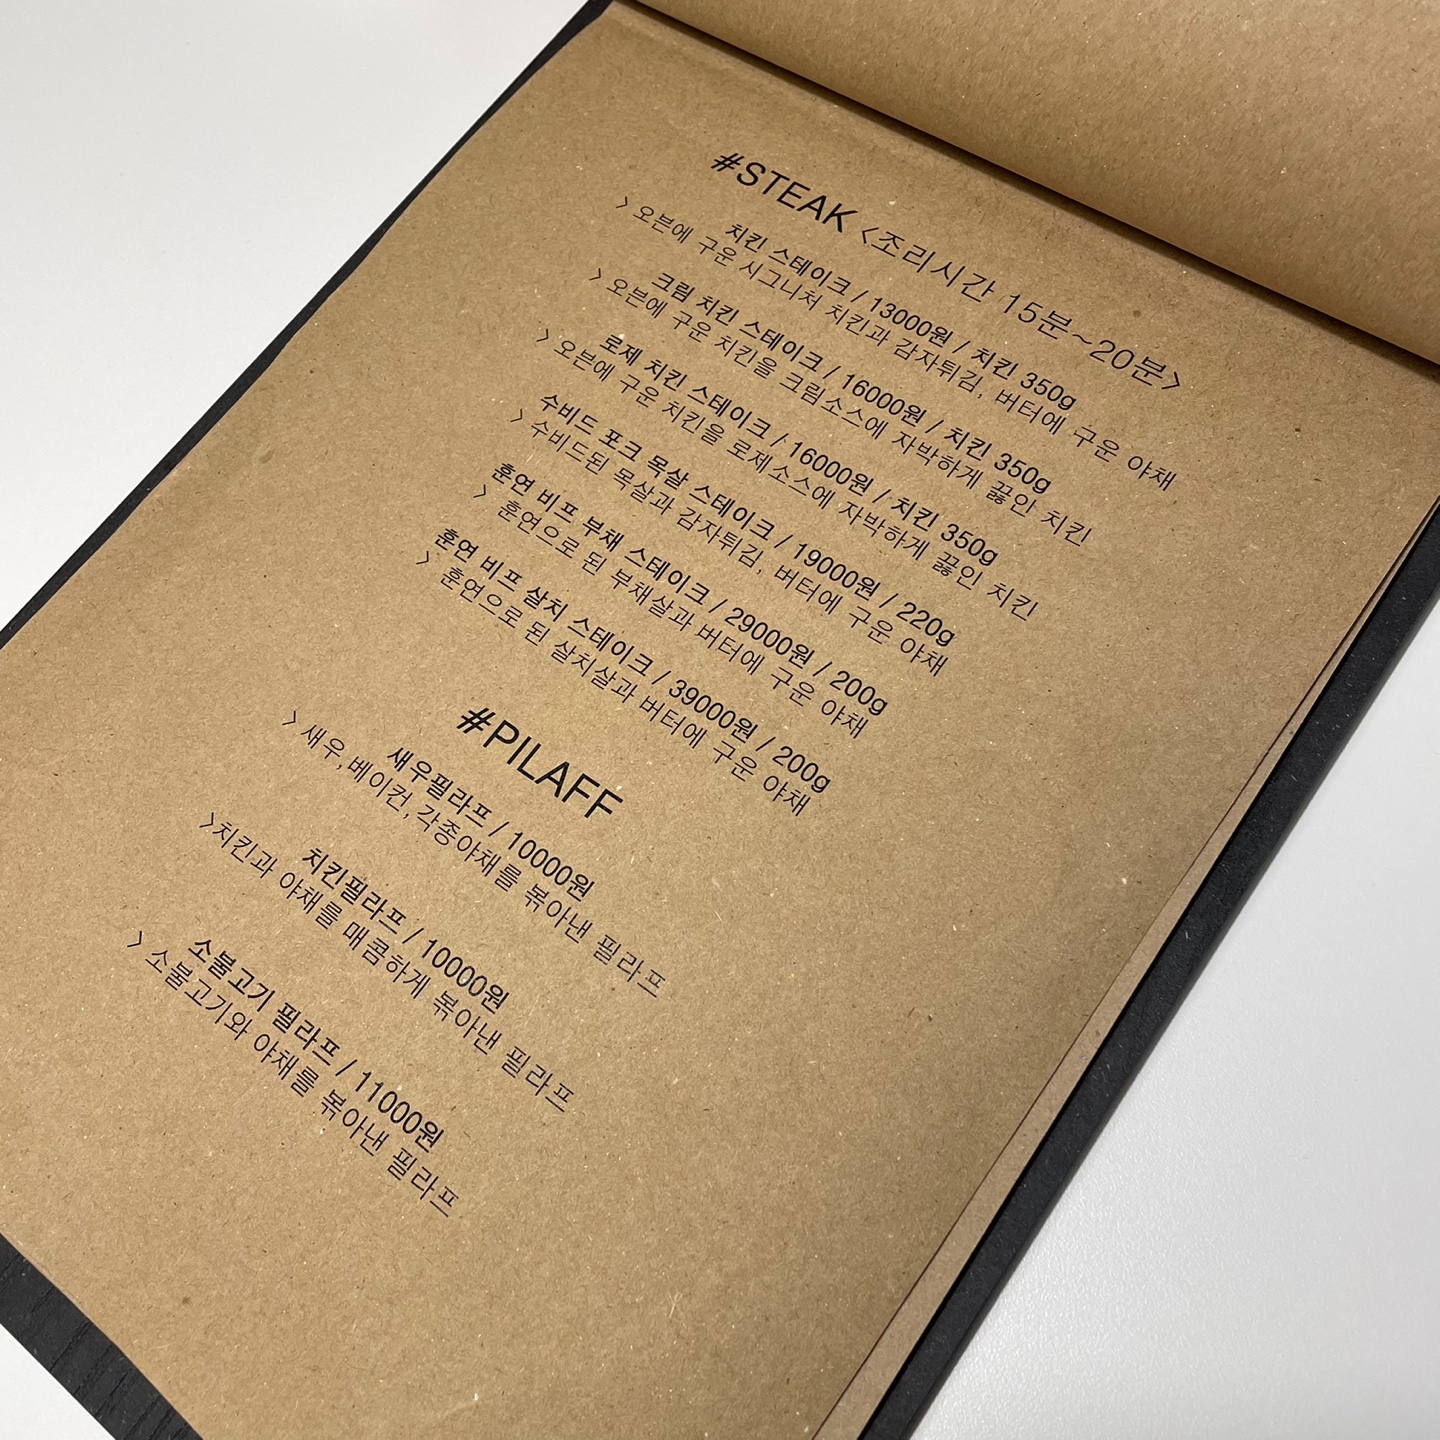 #STEAK <조리시간 15분~20분>
치킨 스테이크 / 13000원 / 치킨 350g
> 오븐에 구운 시그니처 치킨과 감자튀김, 버터에 구운 야채
크림 치킨 스테이크 / 16000원 / 치킨 350g
> 오븐에 구운 치킨을 크림소스에 자박하게 끓인 치킨
로제 치킨 스테이크 / 16000원 / 치킨 350g
> 오븐에 구운 치킨을 로제소스에 자박하게 끓인 치킨
수비드 포크 목살 스테이크 / 19000원 / 220g
> 수비드된 목살과 감자튀김, 버터에 구운 야채
훈연 비프 부채 스테이크 / 29000원 / 200g
> 훈연으로 된 부채살과 버터에 구운 야채
훈연 비프 살치 스테이크 / 39000원 / 200g
> 훈연으로 된 살치살과 버터에 구운 야채
#PILAFF
새우필라프 / 10000원
> 새우,베이컨,각종야채를 볶아낸 필라프
치킨필라프 / 10000원
>치킨과 야채를 매콤하게 볶아낸 필라프
소불고기 필라프 / 11000원
> 소불고기와 야채를 볶아낸 필라프